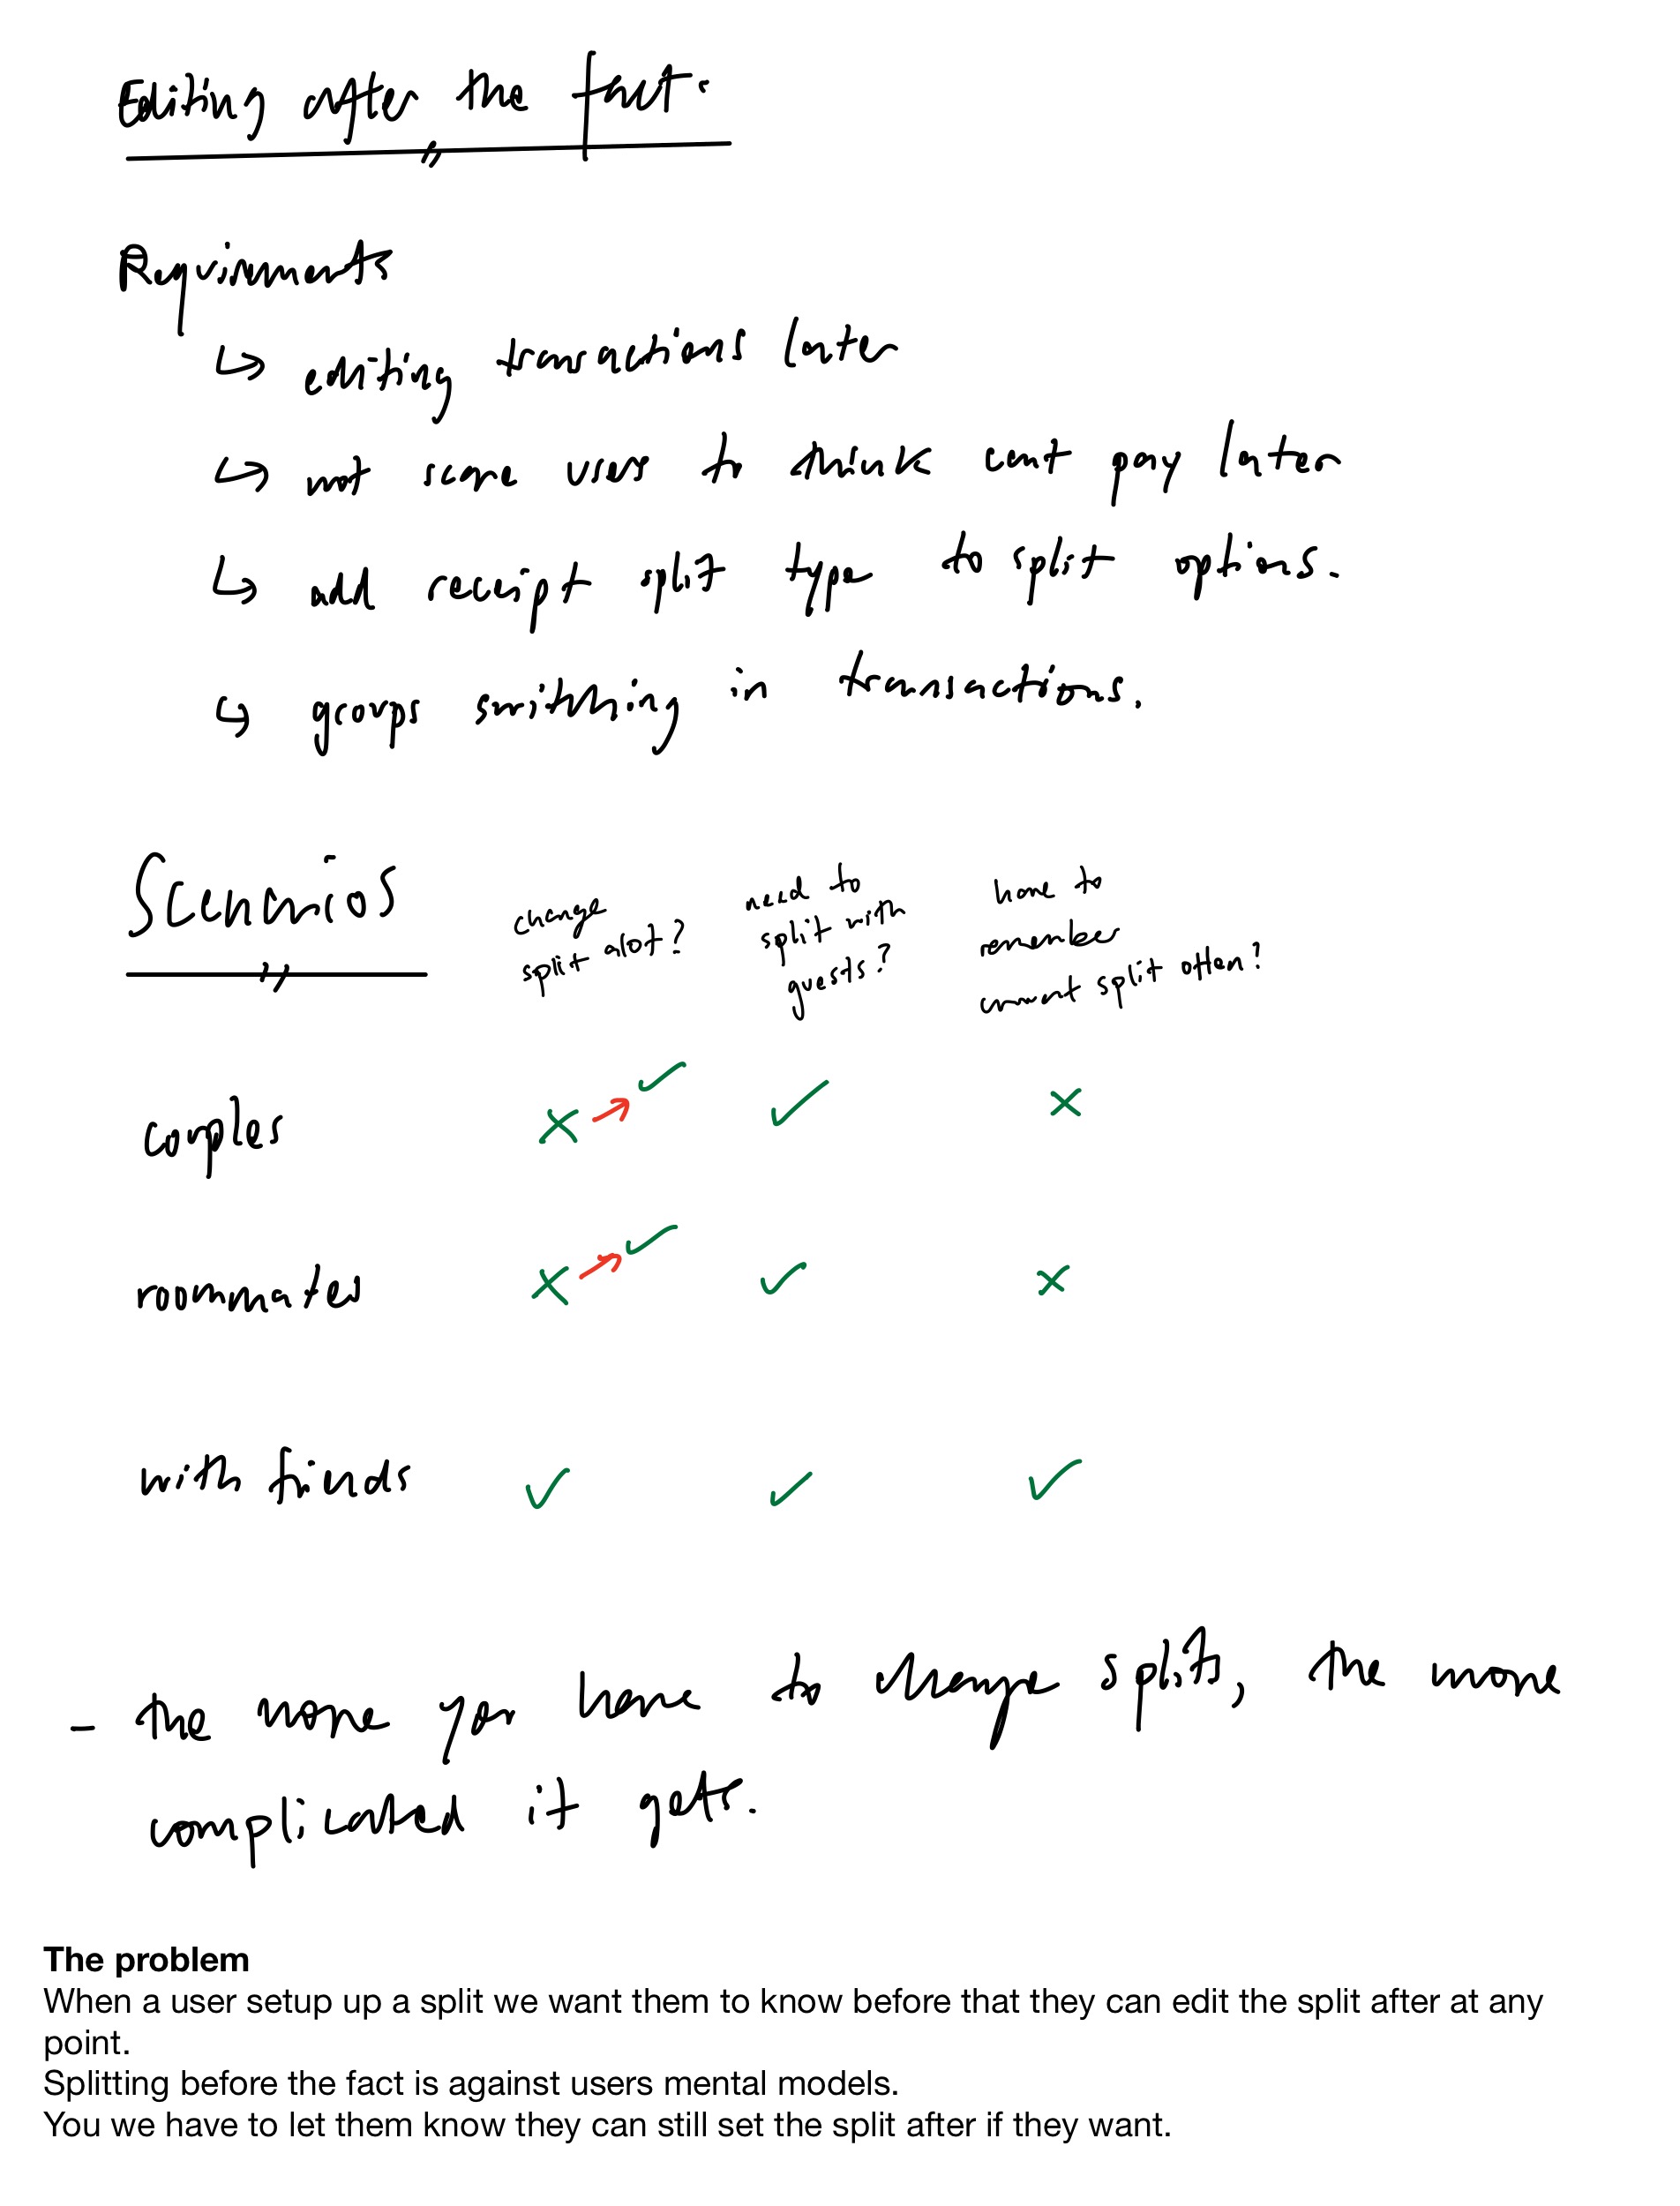 Editing after the fact.
Requirments
editing transactions later
not scare users to think cant pay later
add reciept split type to split options.
groups switching in transactions.
Scenarios
change
split alot?
need to
split with
guests?
have to
remember
current split often?
couples
roommates
with friends
- the more you have to change splits, the more
complicated it gets.
The problem
When a user setup up a split we want them to know before that they can edit the split after at any
point.
Splitting before the fact is against users mental models.
You we have to let them know they can still set the split after if they want.